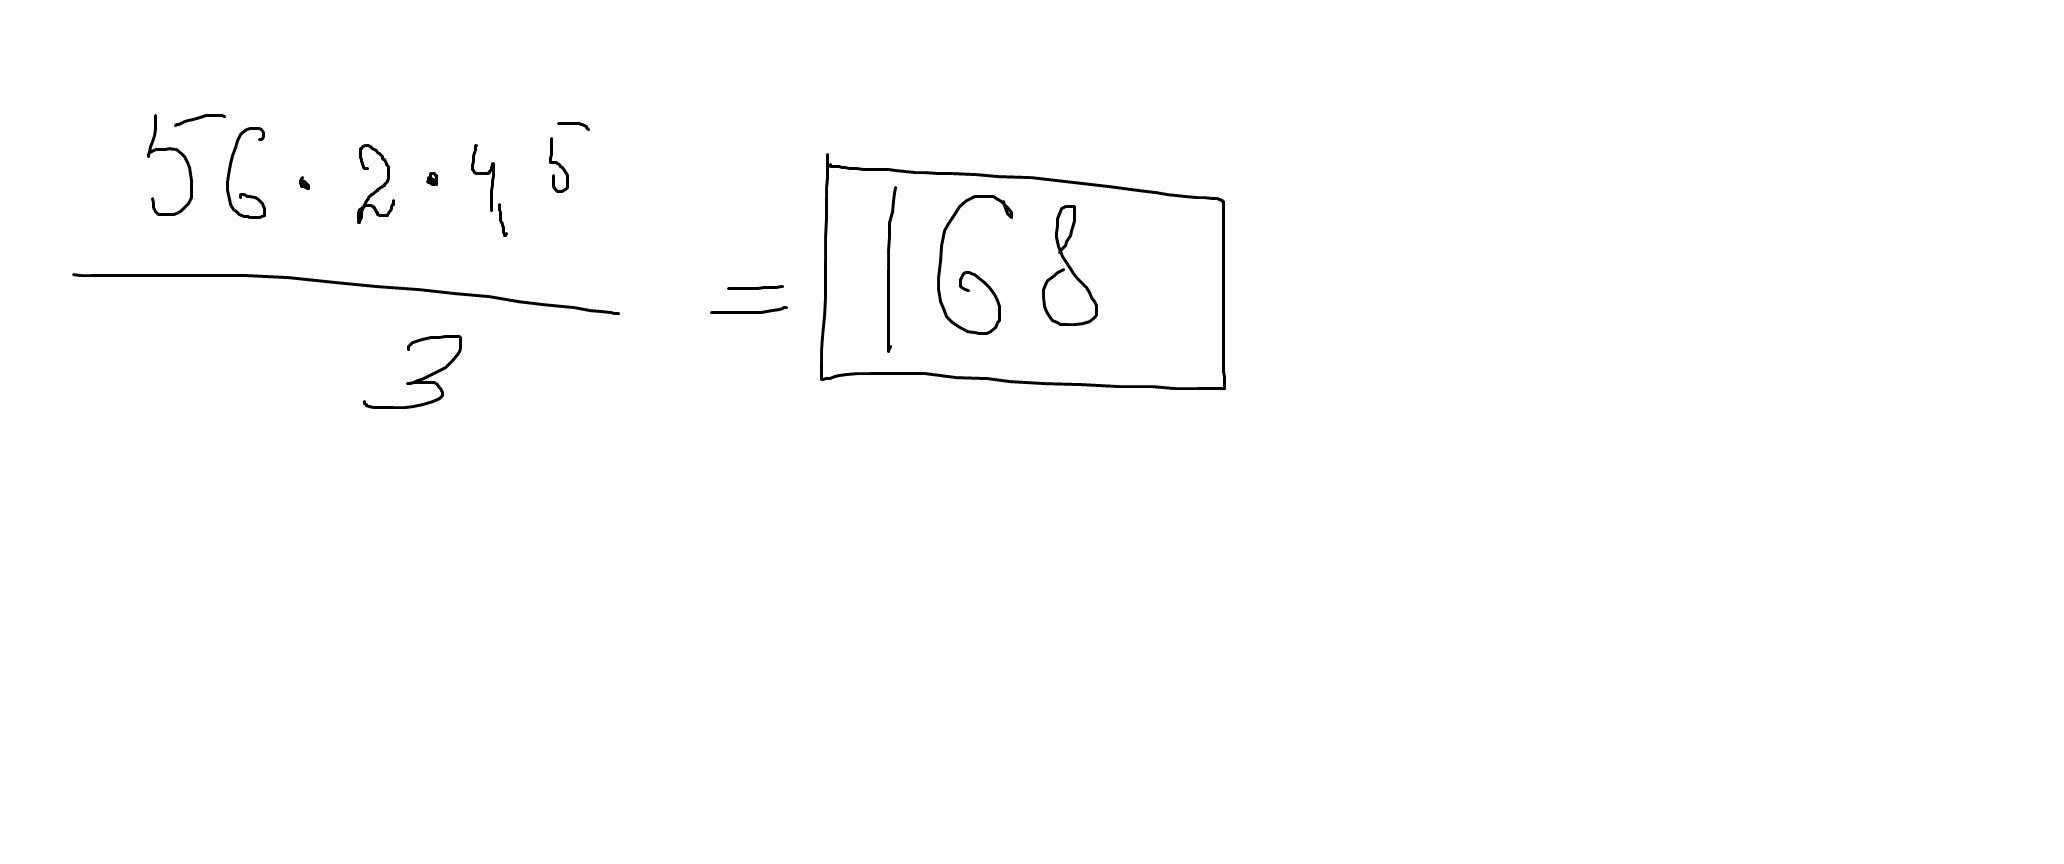 56 · 2 · 4,5
3
= 168